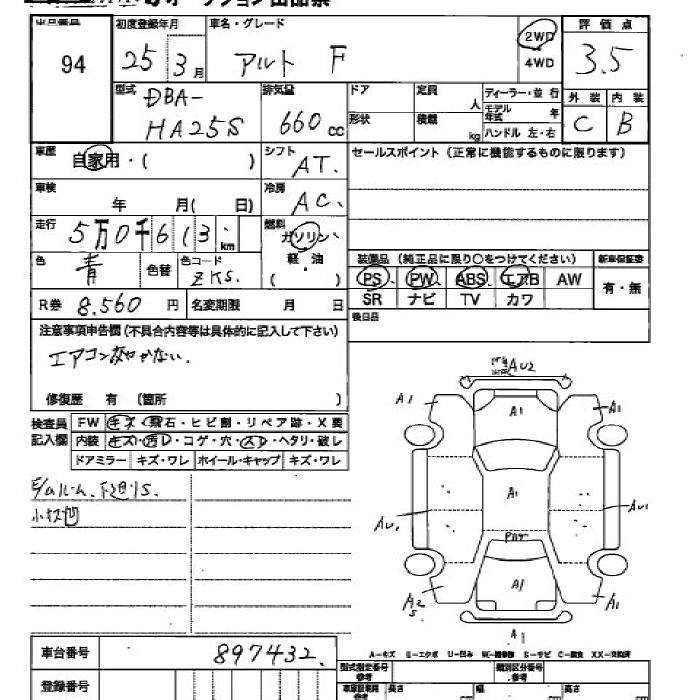 オークション出品票
出品番号 初度登録年月 車名・グレード 2WD 評価点
94 25 3月 アルト F 4WD 3.5
型式 排気量 ドア 定員 人 ディーラー・並行 外装 内装
DBA- 形状 積載 kg モデル年式 年 C B
HA25S 660cc ハンドル 左・右
車歴 自家用・( ) シフト AT. セールスポイント(正常に機能するものに限ります)
車検 年 月( 日) 冷房 AC、
走行 5万0千613km 燃料 ガソリン・軽油
( )
色 青 色替 色コード ZKS. 装備品(純正品に限り○をつけてください) 新車保証書
PS PW ABS エアB AW 有・無
R券 8.560円 名変期限 月 日 SR ナビ TV カワ
注意事項申告欄(不具合内容等は具体的に記入して下さい) 後日品
エアコンきかない.
修復歴 有 (箇所 )
検査員記入欄 FW キズ・飛石・ヒビ割・リペア跡・X要
内装 キズ・汚レ・コゲ・穴・スレ・ヘタリ・破レ
ドアミラー キズ・ワレ ホイール・キャップ キズ・ワレ
AU2
A1 A1 A1
E/ルーム、下廻りS.
小キズ凹
A1
AU1 AU1
A1
A2 S A1
A1
A-キズ E-エクボ U-凹み W-補修跡 S-サビ C-腐食 XX-交換済
車台番号 897432.
型式指定番号 類別区分番号
登録番号 車庫証明用参考 長さ cm 幅 cm 高さ cm